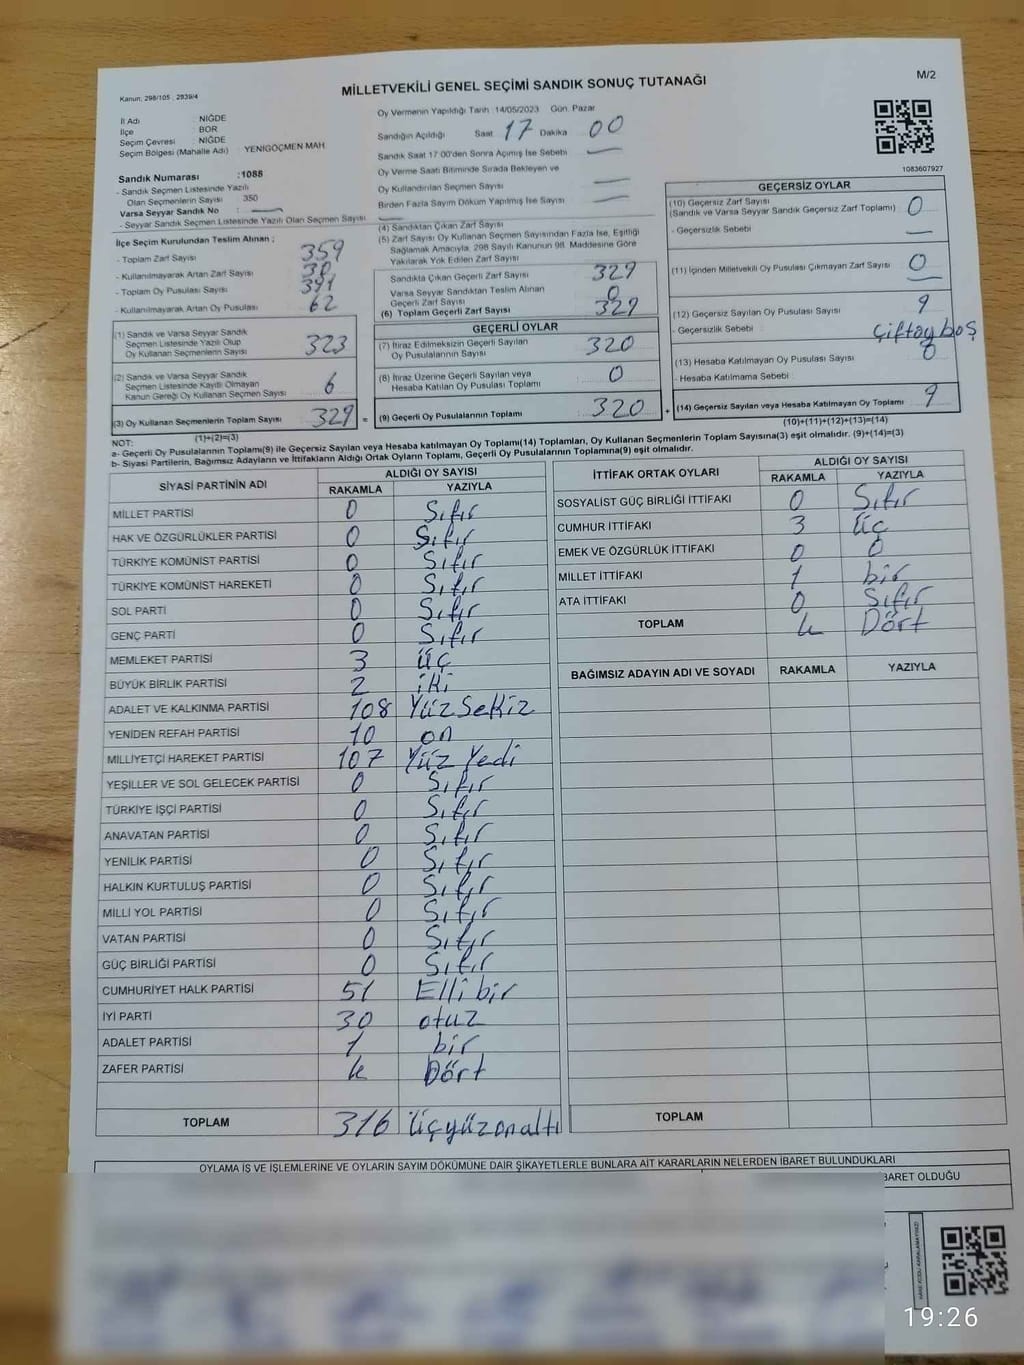 Kanun; 298/105 ; 2839/4
MİLLETVEKİLİ GENEL SEÇİMİ SANDIK SONUÇ TUTANAĞI
M/2
İl Adı : NİĞDE
İlçe : BOR
Seçim Çevresi : NİĞDE
Seçim Bölgesi (Mahalle Adı) : YENİGÖÇMEN MAH
Sandık Numarası :1088
- Sandık Seçmen Listesinde Yazılı
Olan Seçmenlerin Sayısı 350
Varsa Seyyar Sandık No : —
- Seyyar Sandık Seçmen Listesinde Yazılı Olan Seçmen Sayısı —
Oy Vermenin Yapıldığı Tarih :14/05/2023 Gün: Pazar
Sandığın Açıldığı Saat 17 Dakika 00
Sandık Saat 17:00'den Sonra Açımış İse Sebebi —
Oy Verme Saati Bitiminde Sırada Bekleyen ve
Oy Kullandırılan Seçmen Sayısı —
Birden Fazla Sayım Döküm Yapılmış İse Sayısı —
1083607927
İlçe Seçim Kurulundan Teslim Alınan ;
- Toplam Zarf Sayısı 359
- Kullanılmayarak Artan Zarf Sayısı 30
- Toplam Oy Pusulası Sayısı 391
- Kullanılmayarak Artan Oy Pusulası 62
(1) Sandık ve Varsa Seyyar Sandık
Seçmen Listesinde Yazılı Olup
Oy Kullanan Seçmenlerin Sayısı 323
(2) Sandık ve Varsa Seyyar Sandık
Seçmen Listesinde Kayıtlı Olmayan
Kanun Gereği Oy Kullanan Seçmen Sayısı 6
(3) Oy Kullanan Seçmenlerin Toplam Sayısı 329 =
(1)+(2)=(3)
(4) Sandıktan Çıkan Zarf Sayısı
(5) Zarf Sayısı Oy Kullanan Seçmen Sayısından Fazla İse, Eşitliği
Sağlamak Amacıyla, 298 Sayılı Kanunun 98. Maddesine Göre
Yakılarak Yok Edilen Zarf Sayısı
Sandıkta Çıkan Geçerli Zarf Sayısı 329
Varsa Seyyar Sandıktan Teslim Alınan
Geçerli Zarf Sayısı 0
(6) Toplam Geçerli Zarf Sayısı 329
GEÇERLİ OYLAR
(7) İtiraz Edilmeksizin Geçerli Sayılan
Oy Pusulalarının Sayısı 320
(8) İtiraz Üzerine Geçerli Sayılan veya
Hesaba Katılan Oy Pusulası Toplamı 0
(9) Geçerli Oy Pusulalarının Toplamı 320 +
GEÇERSİZ OYLAR
(10) Geçersiz Zarf Sayısı
(Sandık ve Varsa Seyyar Sandık Geçersiz Zarf Toplamı) 0
- Geçersizlik Sebebi —
(11) İçinden Milletvekili Oy Pusulası Çıkmayan Zarf Sayısı 0
(12) Geçersiz Sayılan Oy Pusulası Sayısı 9
- Geçersizlik Sebebi : çiftoy boş
(13) Hesaba Katılmayan Oy Pusulası Sayısı 0
- Hesaba Katılmama Sebebi :
(14) Geçersiz Sayılan veya Hesaba Katılmayan Oy Toplamı 9
(10)+(11)+(12)+(13)=(14)
NOT:
a- Geçerli Oy Pusulalarının Toplamı(9) ile Geçersiz Sayılan veya Hesaba katılmayan Oy Toplamı(14) Toplamları, Oy Kullanan Seçmenlerin Toplam Sayısına(3) eşit olmalıdır. (9)+(14)=(3)
b- Siyasi Partilerin, Bağımsız Adayların ve İttifakların Aldığı Ortak Oyların Toplamı, Geçerli Oy Pusulalarının Toplamına(9) eşit olmalıdır.
SİYASİ PARTİNİN ADI ALDIĞI OY SAYISI
RAKAMLA YAZIYLA
MİLLET PARTİSİ 0 Sıfır
HAK VE ÖZGÜRLÜKLER PARTİSİ 0 Sıfır
TÜRKİYE KOMÜNİST PARTİSİ 0 Sıfır
TÜRKİYE KOMÜNİST HAREKETİ 0 Sıfır
SOL PARTİ 0 Sıfır
GENÇ PARTİ 0 Sıfır
MEMLEKET PARTİSİ 3 üç
BÜYÜK BİRLİK PARTİSİ 2 iki
ADALET VE KALKINMA PARTİSİ 108 Yüz Sekiz
YENİDEN REFAH PARTİSİ 10 on
MİLLİYETÇİ HAREKET PARTİSİ 107 Yüz Yedi
YEŞİLLER VE SOL GELECEK PARTİSİ 0 Sıfır
TÜRKİYE İŞÇİ PARTİSİ 0 Sıfır
ANAVATAN PARTİSİ 0 Sıfır
YENİLİK PARTİSİ 0 Sıfır
HALKIN KURTULUŞ PARTİSİ 0 Sıfır
MİLLİ YOL PARTİSİ 0 Sıfır
VATAN PARTİSİ 0 Sıfır
GÜÇ BİRLİĞİ PARTİSİ 0 Sıfır
CUMHURİYET HALK PARTİSİ 51 Elli bir
İYİ PARTİ 30 otuz
ADALET PARTİSİ 1 bir
ZAFER PARTİSİ 4 Dört
TOPLAM 316 üçyüzonaltı
İTTİFAK ORTAK OYLARI ALDIĞI OY SAYISI
RAKAMLA YAZIYLA
SOSYALİST GÜÇ BİRLİĞİ İTTİFAKI 0 Sıfır
CUMHUR İTTİFAKI 3 üç
EMEK VE ÖZGÜRLÜK İTTİFAKI 0 0
MİLLET İTTİFAKI 1 bir
ATA İTTİFAKI 0 Sıfır
TOPLAM 4 Dört
BAĞIMSIZ ADAYIN ADI VE SOYADI RAKAMLA YAZIYLA
TOPLAM
OYLAMA İŞ VE İŞLEMLERİNE VE OYLARIN SAYIM DÖKÜMÜNE DAİR ŞİKAYETLERLE BUNLARA AİT KARARLARIN NELERDEN İBARET BULUNDUKLARI
BARET OLDUĞU
19:26